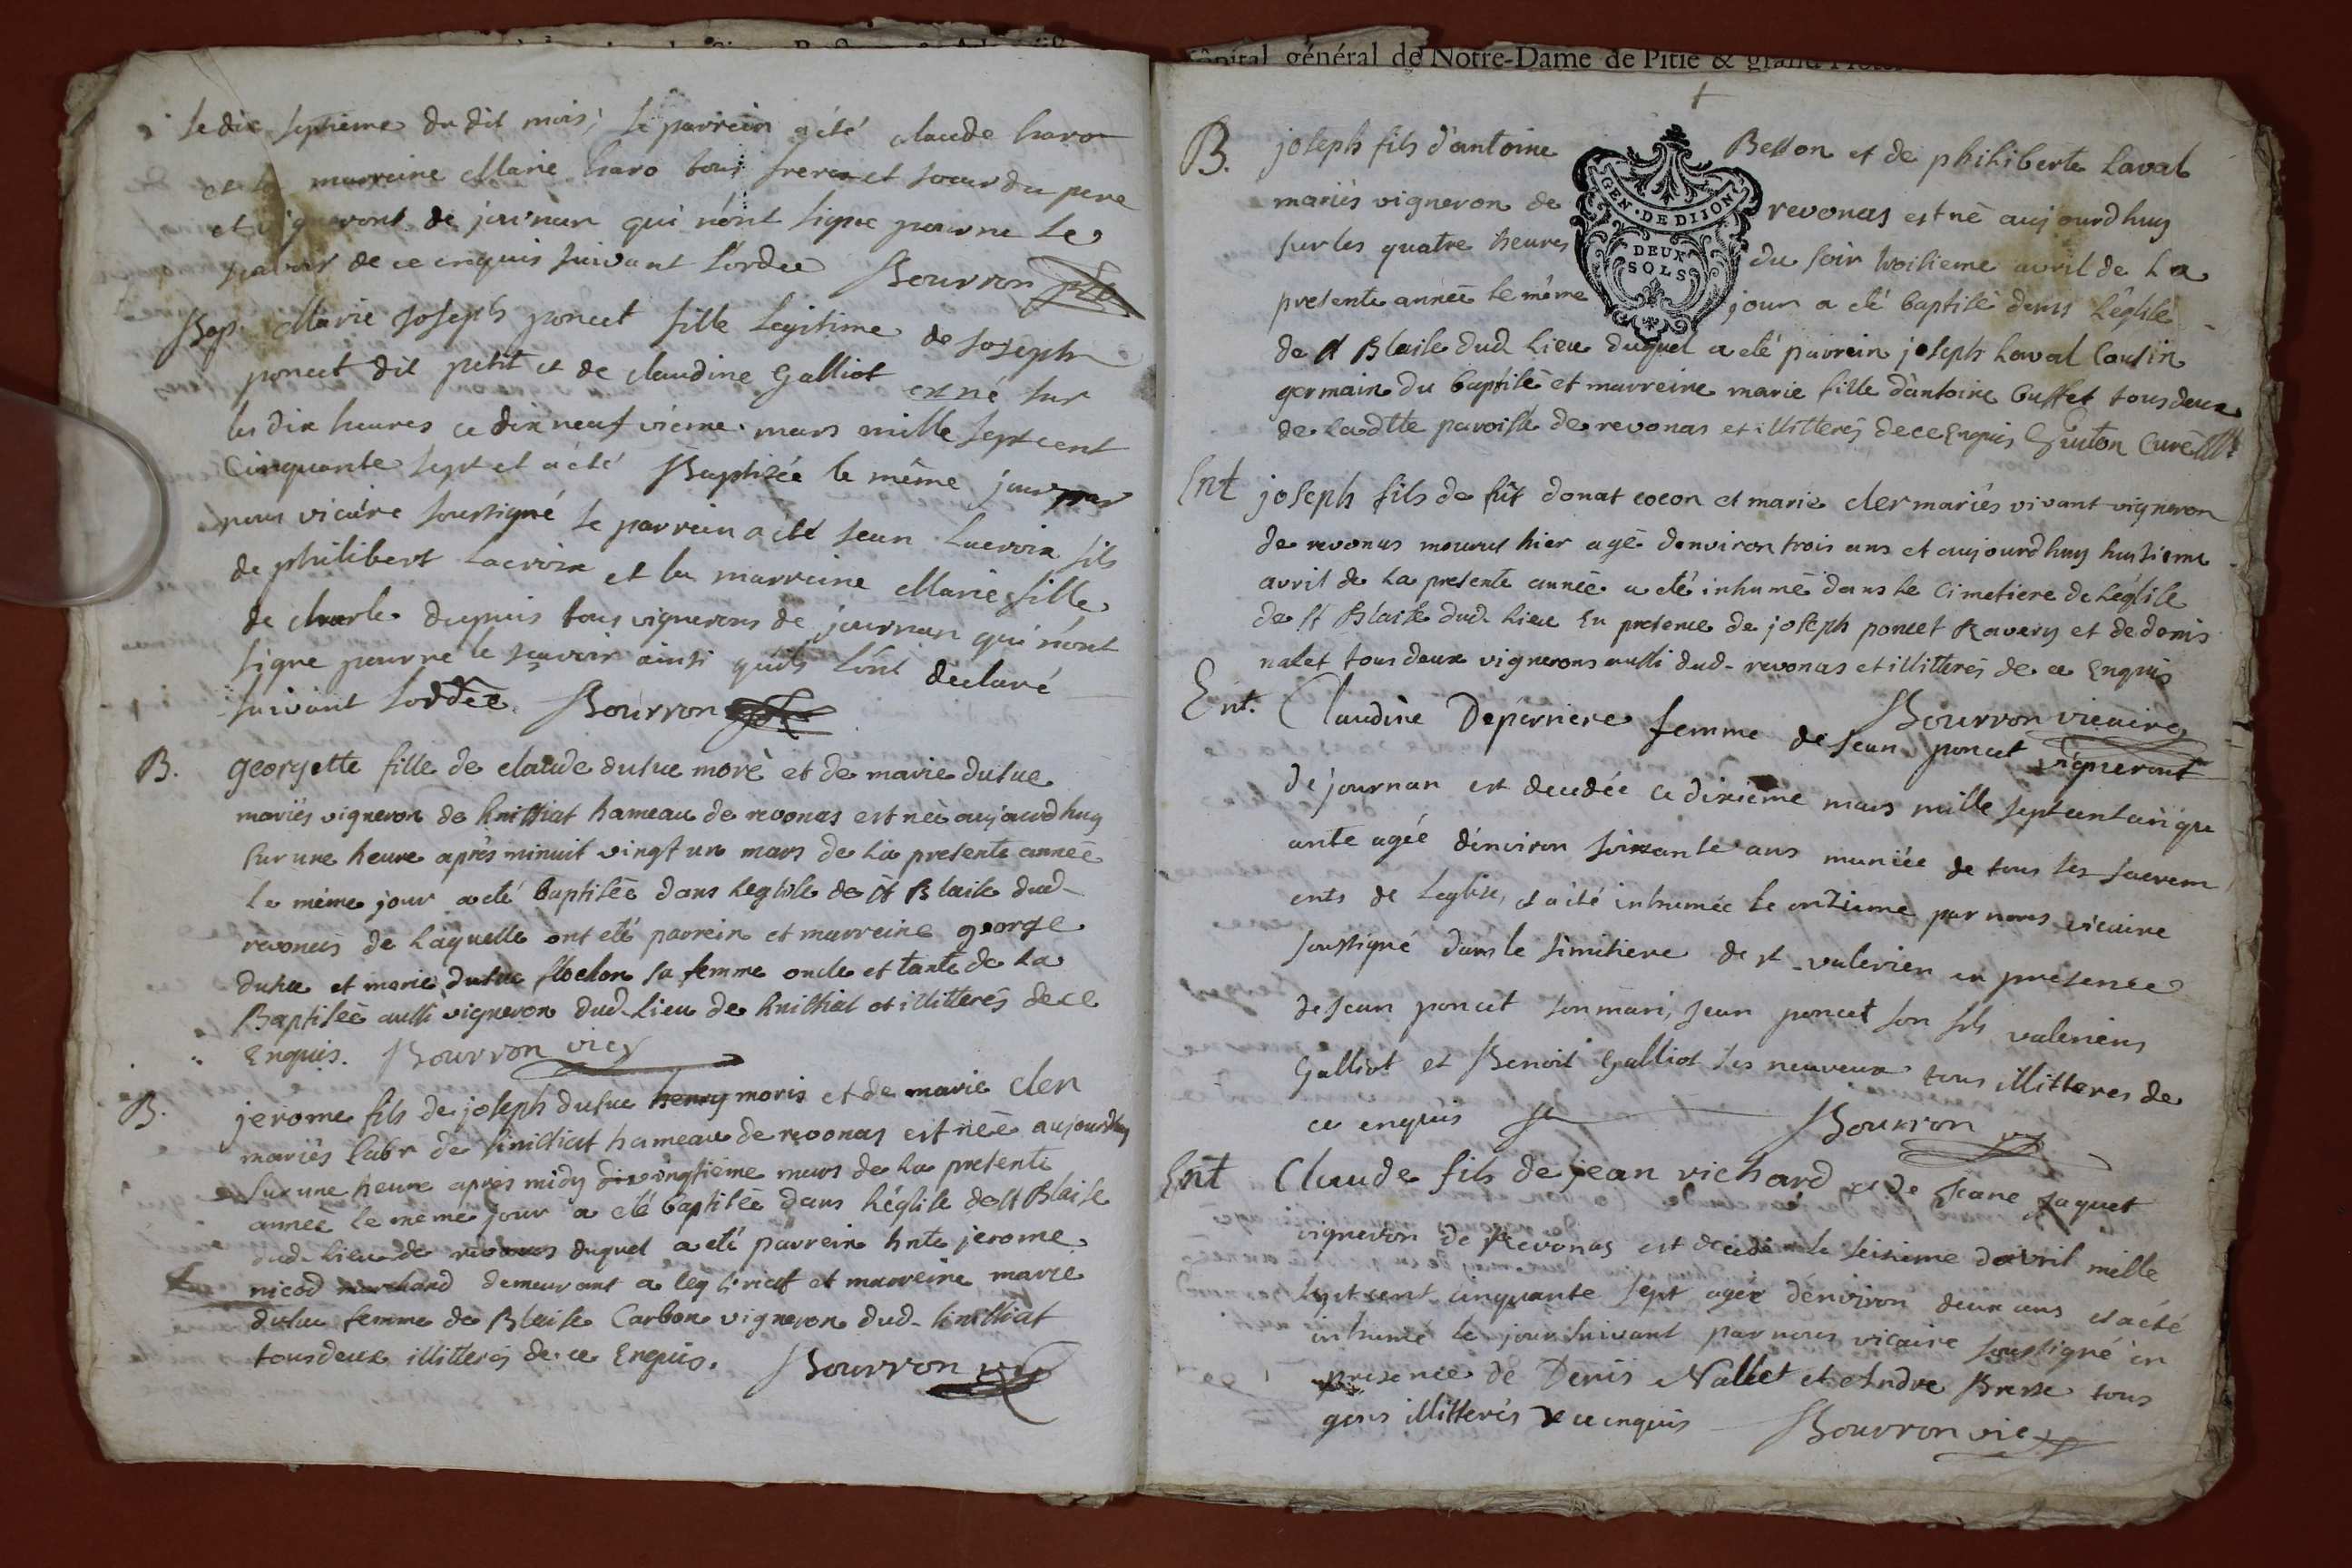 le dix septieme du dit mois, le parrein a été claude haro
et la marreine Marie haro tous freres et soeur du pere
et vignerons de journan qui n'ont signé pour ne le
savoir de ce enquis suivant l'ordce Bourron
Bap. Marie Joseph poncet fille legitime de Joseph
poncet dit petit et de claudine Galliot est né sur
les dix heures ce dix neuf vieme mars mille sept cent
Cinquante sept et a été Baptisée le même jour par
nous vicaire soussigné le parrein a été Jean Lacroix fils
de philibert Lacroix et la marreine Marie fille
de charle dupuis tous vignerons de journan qui n'ont
signe pour ne le sçavoir ainsi qu'ils l'ont declaré
suivant l'ordce. Bourron
B. georgette fille de claude dusuc moré et de marie dusuc
mariés vigneron de hameau de revonas est née aujourdhuy
sur une heure après minuit vingt un mars de la presente année
le même jour a eté baptisée dans leglise de st Blaise dud
revonas de laquelle ont eté parrein et marreine george
dusuc et marie dusuc flochon sa femme oncle et tante de la
Baptisée aussi vigneron dud lieu de et illitterés de ce
Enquis. Bourron vicr
B. jerome fils de joseph dusuc henry moris et de marie cler
mariés labr de hameau de revonas est née aujourdhuy
sur une heure apres midy vingtième mars de la presente
année le meme jour a eté baptisée dans l'église de st Blaise
dud lieu de revonas duquel a eté parrein hnte jerome
nicod marchand demeurant a et marreine marie
dusuc femme de Blaise Carbon vigneron dud
tous deux illitterés de ce Enquis. Bourron vic
hôpital général de Notre-Dame de Pitié & grand
B. joseph fils d'antoine Bellon et de philiberte Laval
GEN. DE DIJON
DEUX
SOLS
mariés vigneron de revonas est né aujourdhuy
sur les quatre heures du soir troisieme avril de la
presente année le même jour a eté baptisé dans l'église
de st Blaise dud lieu duquel a eté parrein joseph Laval Cousin
germain du baptisé et marreine marie fille d'antoine buffet tous deux
de ladtte paroisse de revonas et illitterés de ce Enquis Guiton Curé
Ent joseph fils de fût donat cocon et marie cler mariés vivant vigneron
de revonas mourut hier agé d'environ trois ans et aujourdhuy huitieme
avril de la presente année a eté inhumé dans le Cimetiere de l'église
de st Blaise dud lieu En presence de joseph poncet Ravery et de denis
nalet tous deux vignerons aussi dud revonas et illitterés de ce Enquis
Bourron vicaire
Ent. Claudine Deperriere femme de Jean poncet vigneront
de journan est decedée ce dixieme mars mille septcentcinqu
ante agée d'environ soixante ans muniée de tous les sacrem
ents de Leglise, et a été inhumée le onzieme par nous vicaire
soussigné dans le simitiere de st valerien en presence
de Jean poncet son mari, Jean poncet son fils valeriens
Galliot et Benoit Galliot ses neuveux tous illitteres de
ce enquis Bourron
Ent Claude fils de jean vichard et de Jeane Jaquet
vigneron de Revonas est decedé le seisieme d'avril mille
sept cent cinquante sept agée d'environ deux ans et a été
inhumé le jour suivant par nous vicaire soussigné en
presence de Denis Nallet et Andre Bresse tous
gens illitterés de ce enquis Bourron vic